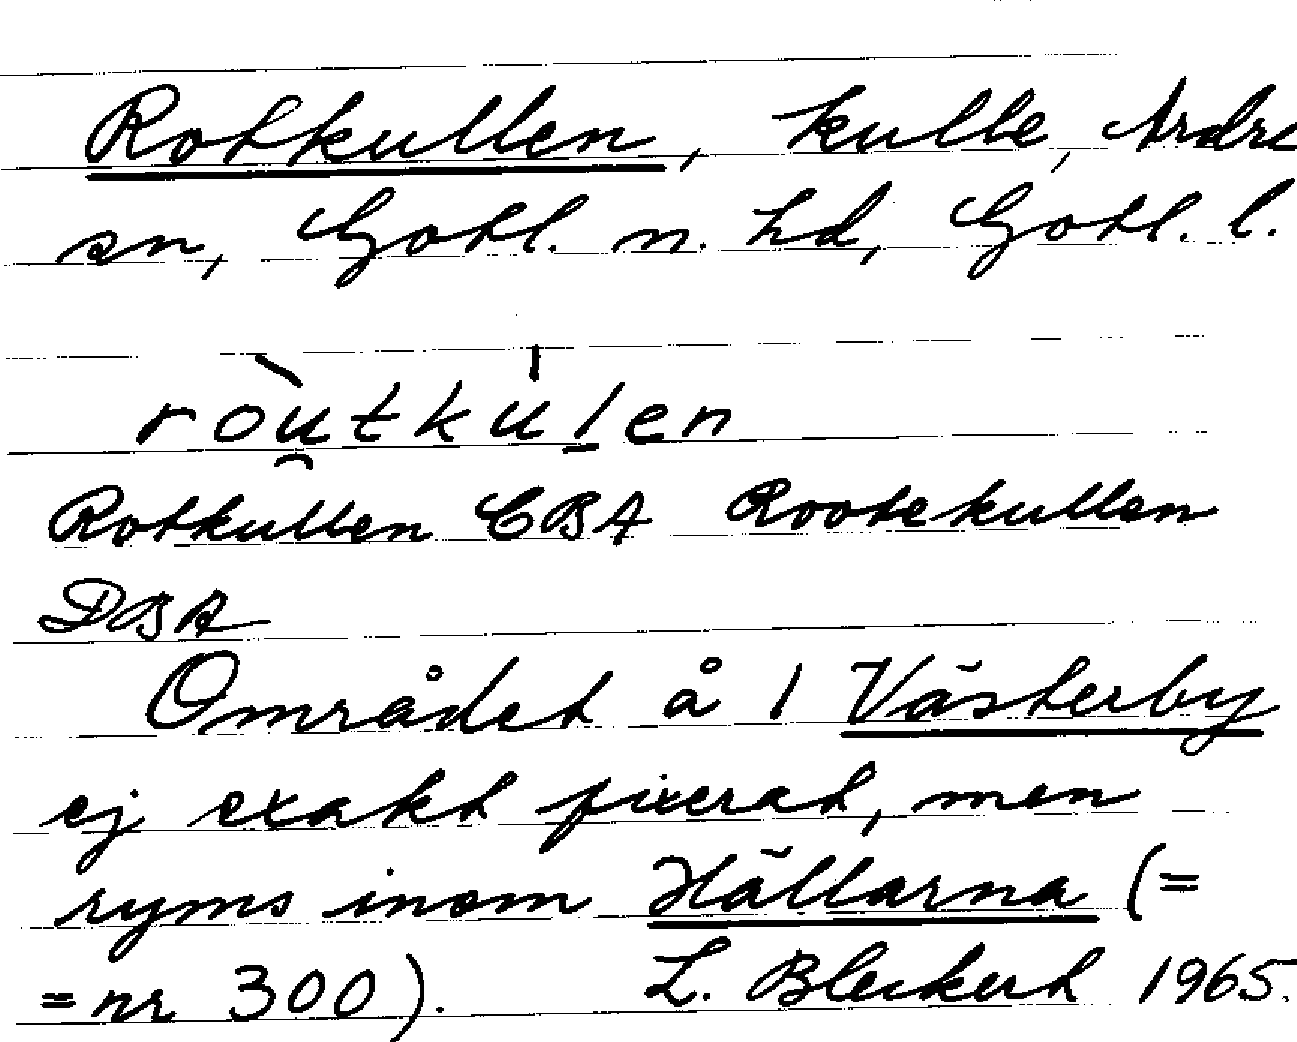 Rotkullen, kulle, Ardre
sn, Gotl. n. hd, Gotl. l.
ròu̯tkúl̲en
Rotkullen CBA Rootekullen
DBA
Området å 1 Västerby
ej exakt fixerat, men
ryms inom Hällarna (=
= nr 300). L. Bleckert 1965.